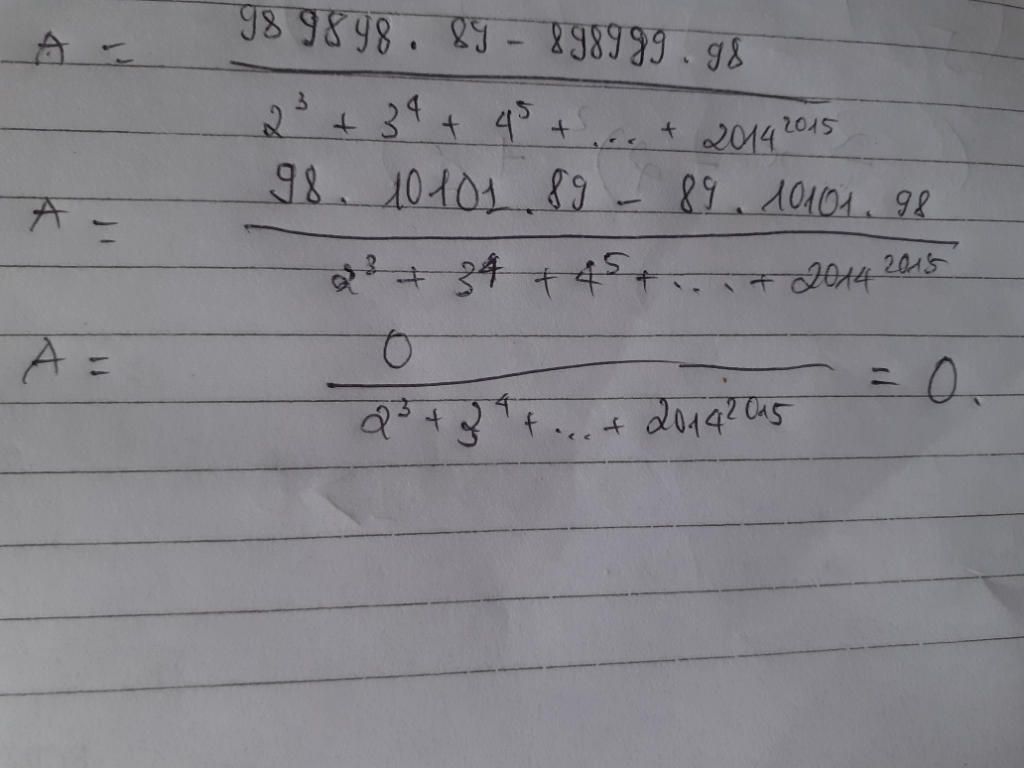 A = (989898 . 89 - 898999 . 98) / (2³ + 3⁴ + 4⁵ + ... + 2014²⁰¹⁵)
A = (98 . 10101 . 89 - 89 . 10101 . 98) / (2³ + 3⁴ + 4⁵ + ... + 2014²⁰¹⁵)
A = 0 / (2³ + 3⁴ + ... + 2014²⁰¹⁵) = 0.